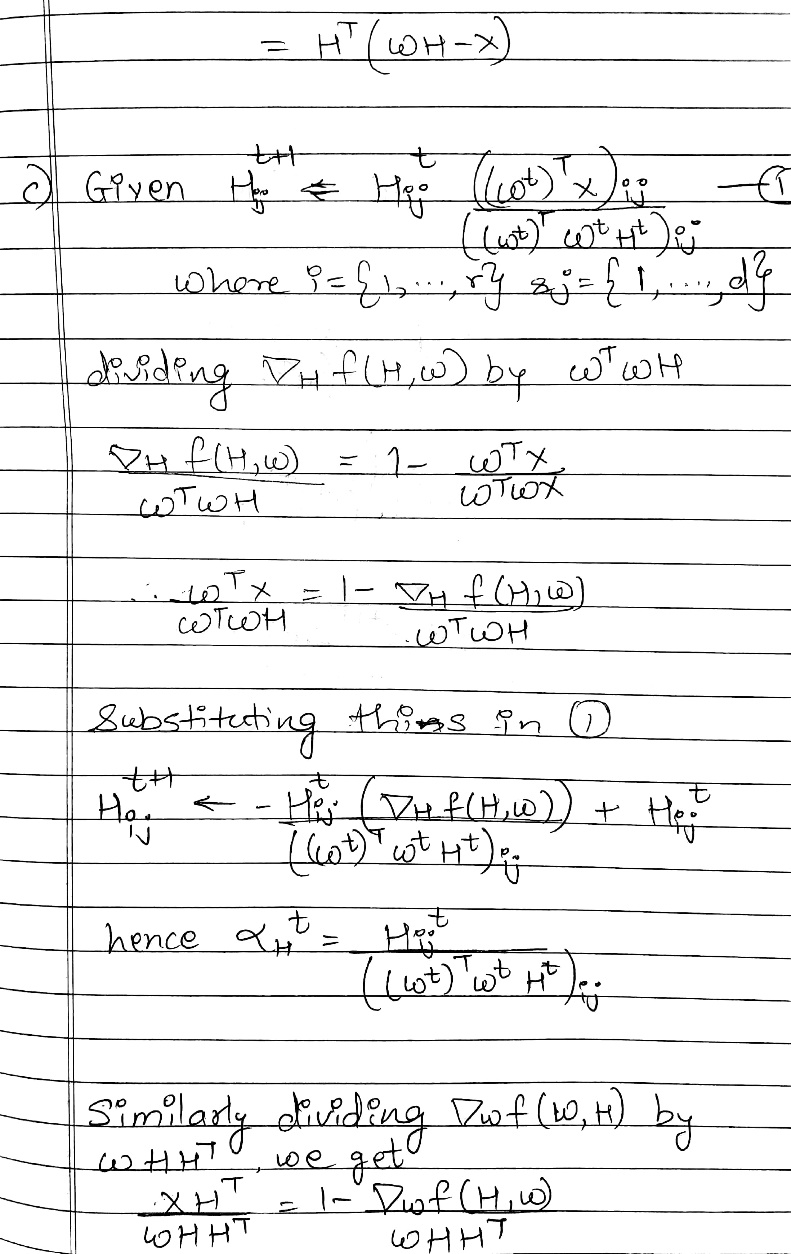 = H^T (WH - X)
c) Given H_ij^{t+1} ⇐ H_ij^t ((W^t)^T X)_ij / ((W^t)^T W^t H^t)_ij — (1
where i = {1, ..., r} & j = {1, ...., d}
dividing ∇_H f(H, W) by W^T W H
∇_H f(H, W) / W^T W H = 1 - W^T X / W^T W X
∴ W^T X / W^T W H = 1 - ∇_H f(H, W) / W^T W H
Substituting this in (1)
H_ij^{t+1} ← - H_ij^t (∇_H f(H, W)) / ((W^t)^T W^t H^t)_ij + H_ij^t
hence α_H^t = H_ij^t / ((W^t)^T W^t H^t)_ij
Similarly dividing ∇_W f(W, H) by
W H H^T, we get
X H^T / W H H^T = 1 - ∇_W f(H, W) / W H H^T